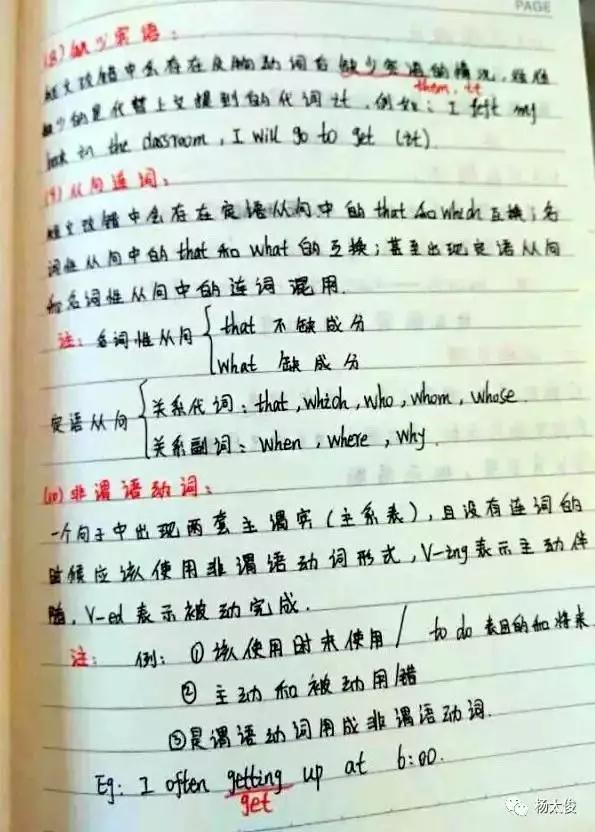 PAGE
(8) 缺少宾语：
短文改错中会存在及物动词后缺少宾语的情况，往往
them, it
缺少的是代替上文提到的代词it，例如：I left my
book in the classroom, I will go to get (it).
(9) 从句连词：
短文改错中会存在定语从句中的that和which互换；名
词性从句中的that和what的互换；甚至出现定语从句
和名词性从句中的连词混用.
注：名词性从句 that 不缺成分
what 缺成分
定语从句 关系代词：that, which, who, whom, whose.
关系副词：when, where, why.
(10) 非谓语动词：
一个句子中出现两套主谓宾(主系表)，且没有连词的
时候应该使用非谓语动词形式，V-ing表示主动伴
随，V-ed表示被动完成.
注： 例：①该使用时未使用 / to do 表目的和将来
②主动和被动用错
③是谓语动词用成非谓语动词.
Eg: I often getting up at 6:00.
get
杨太俊